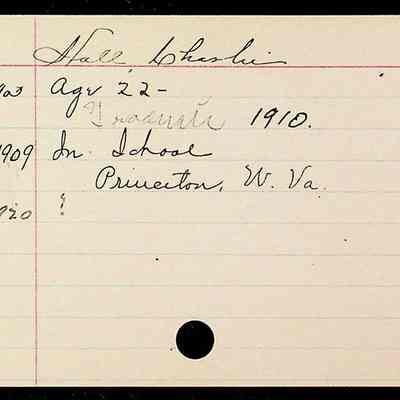 Hall Charlie
Age 22-
Graduate 1910.
1909 In School
Princeton, W. Va.
1920 ?